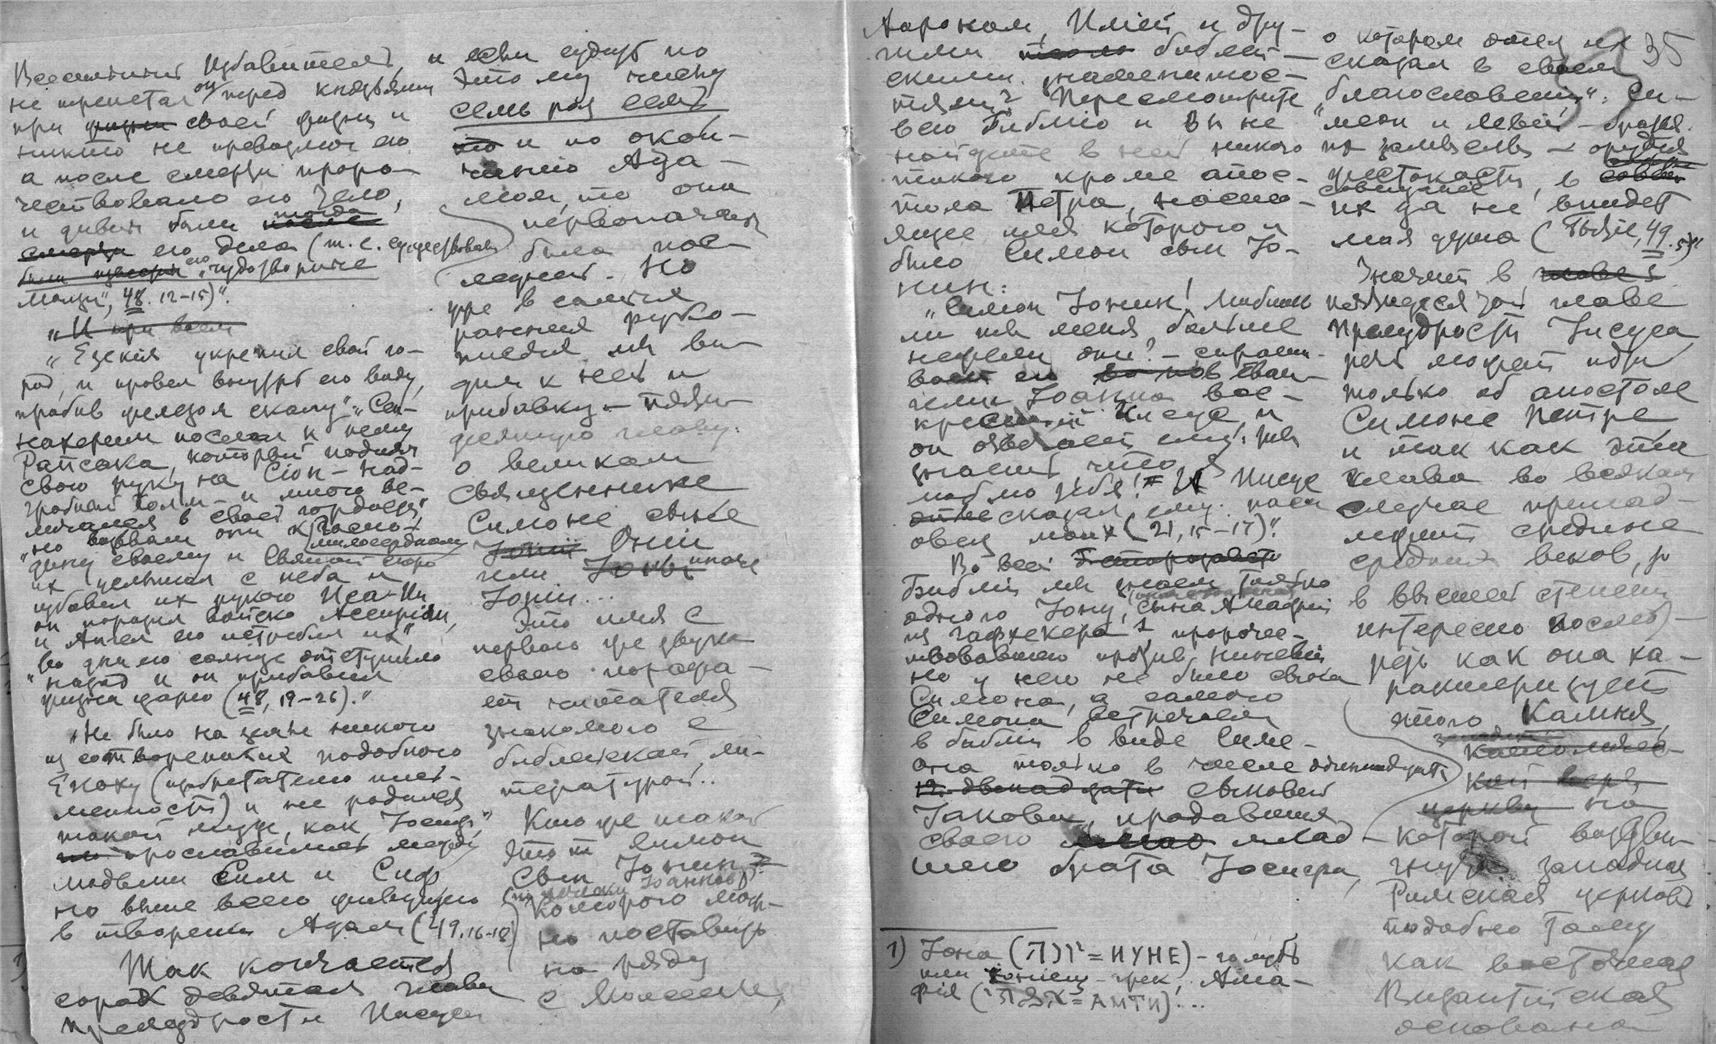 Всесильный избавитель, и
не трепетал он перед князьями
при жизни своей жизни и
никто не превозмог его
а после смерти проро-
чествовало его тело,
и дивны были тогда после
смерти его дела (т. е. существовали
были его „чудотворные
мощи“, 48. 12-15)“.
„И при всем
„Езекия укрепил свой го-
род, и провел внутрь его воду,
пробив железом скалу“. „Сен-
нахерим послал к нему
Рапсака, который поднял
свою руку на Сіон – над-
гробный холм – и много ве-
личался в своей гордости“
„но воззвали они к Господу
милосердному
и Святой скоро
их услышал с неба и
избавил их рукою Исаии
он поразил войско Ассиріян,
и Ангел его истребил их“
„во дни его солнце отступило
„назад и он прибавил
жизни царю (48, 19-26).“
„Не было на земле никого
из сотворенных подобного
Еноху (изобретателю пись-
менности) и не родился
такой муж, как Іосиф“,
прославились между
людьми Сим и Сиф
но выше всего живущего
в творении Адам (49.16-18)
Так кончается
сорок девятая глава
премудрости Иисуса
если судить по
этому числу
семь раз семь
то и по окон-
чанію Ада-
мом, то она
первоначально
была пос-
ледней. Но
уже в самых
ранних руко-
писях мы ви-
дим к ней и
прибавку – пяти-
десятую главу:
о великом
священнике
Симоне сыне
Іоніи Оніи
или Іоны иначе
Іоніи...
Это имя с
первого же звука
своего поража-
ет читателя
знакомого с
библейской ли-
тературой..
Кто же такой
этот Симон
сын Іонин?
которого мож-
но поставить
на ряду
с Моисеем,
Аароном, Илией и дру-
гими библей-
скими знаменитос-
тями? Пересмотрите
всю Библію и вы не
найдете в ней никого
такого кроме апос-
тола Петра, настоя-
щее имя которого и
было Симон сын Іо-
нин:
„Симон Іонин! любишь
ли ты меня больше
нежели они? – спраши-
вает его в Еван-
гелии Іоанна вос-
кресший Иисус, и
он отвечает ему: ты
знаешь что я
люблю тебя! = И Иисус
сказал ему: паси
овец моих (21, 15-17)“.
Во всей
Библіи мы знаем только
одного Іону, сына Амафіи
из Гафхефера 1 пророчес-
твовавшего против Ниневіи
но у него не было сына
Симона, а самого
Симона встречаем
в библіи в виде Симе-
она только в числе одиннадцати
12. двенадцати сыновей
Іакова, продавших
своего млад-
шего брата Іосифа,
1) Іона (= ИУНЕ) – голубь
или – грек, Ама-
фія (= АМТИ)...
35
о котором отец их
сказал в своем
„благословеніи“: Си-
меон и Левій – братья
по замыслам – орудія
жестокости, в совет
совещаніе
их да не внидет
моя душа (Бытіе, 49.5)“
Значит в главе
пятидесятой главе
Премудрости Іисуса
речь может идти
только об апостоле
Симоне Петре
и так как эта
глава во всяком
случае принад-
лежит средине
средних веков, то
в высшей степени
интересно посмот-
реть как она ха-
рактеризует
этого Камня,
церкви на
которой воздвиг-
нута западная
Римская церковь
подобно тому
как восточная
Византійская
основана